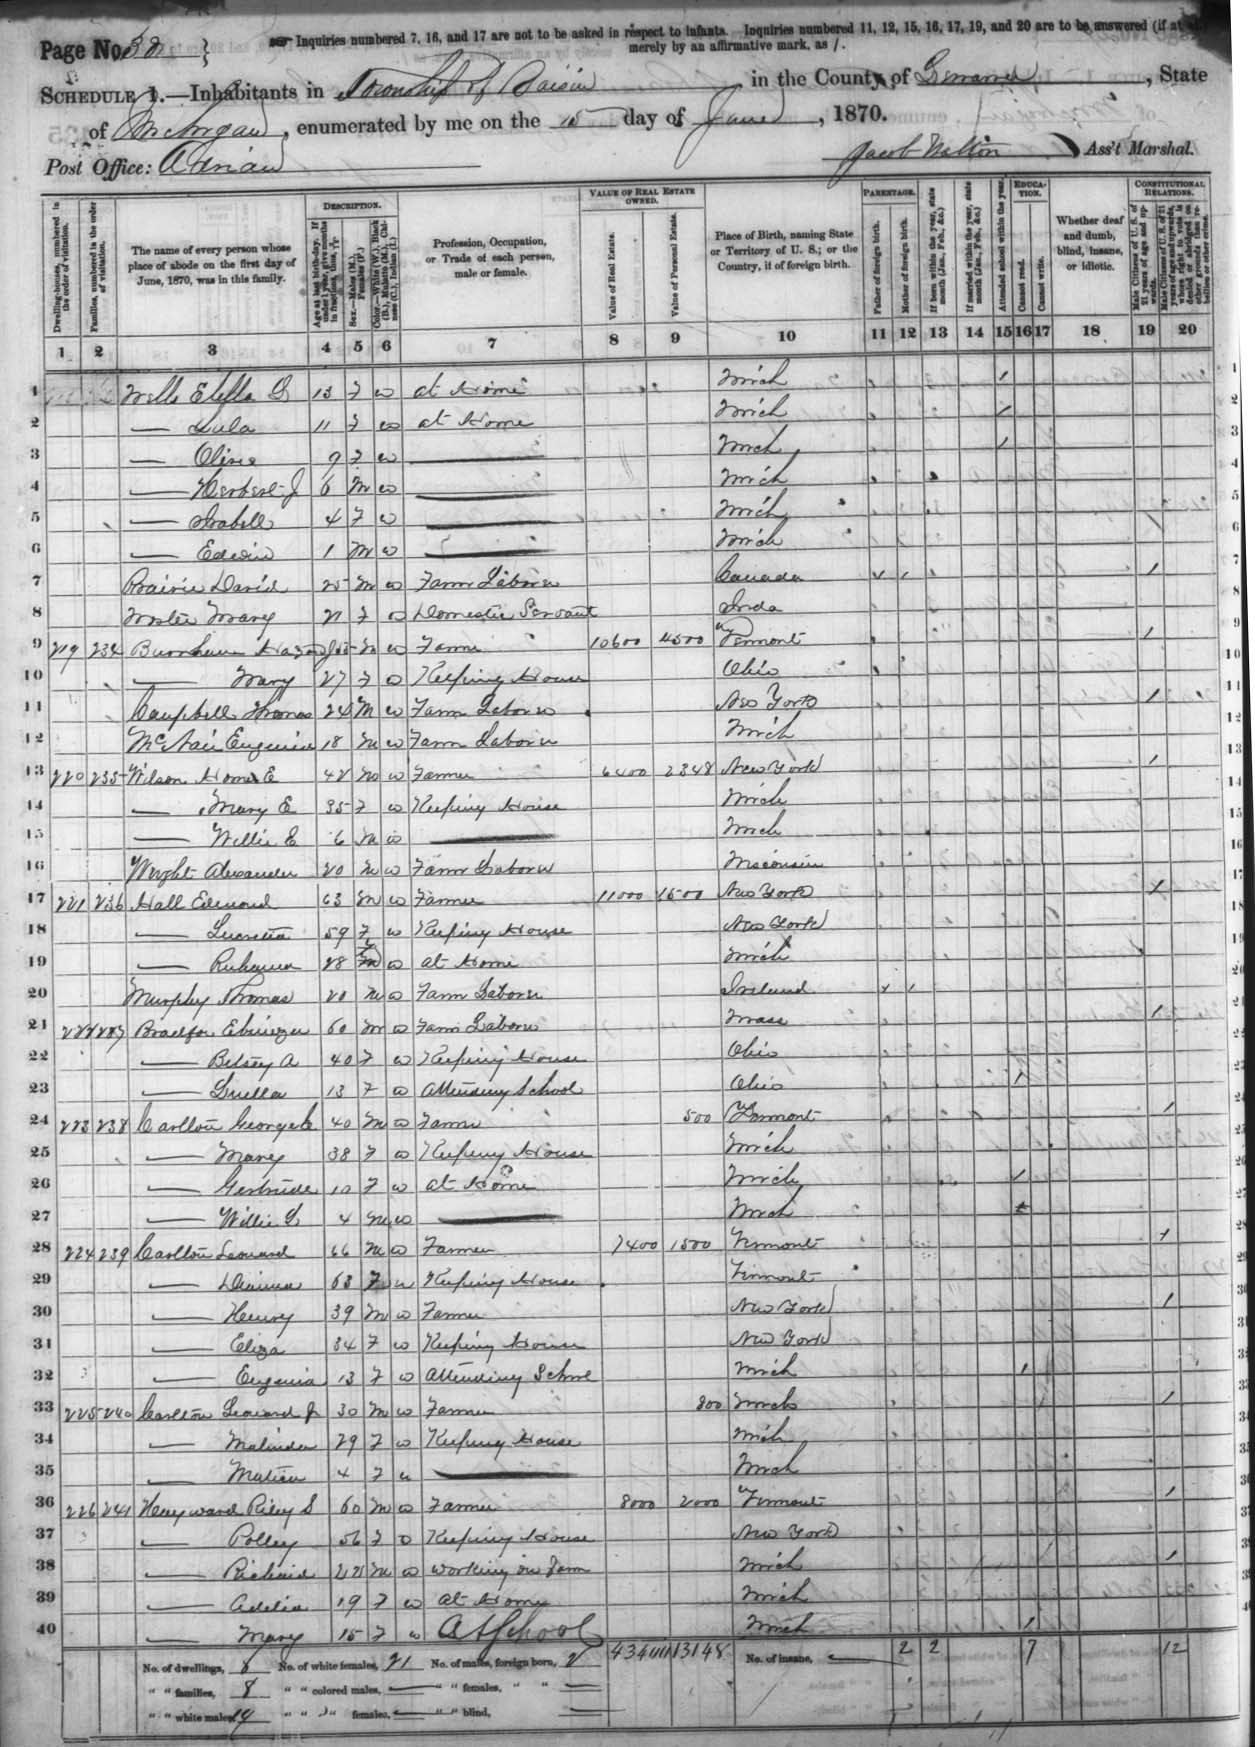 Page No. 32 } Inquiries numbered 7, 16, and 17 are not to be asked in respect to infants. Inquiries numbered 11, 12, 15, 16, 17, 19, and 20 are to be answered (if at all)
merely by an affirmative mark, as /.
SCHEDULE 1.—Inhabitants in Township of Raisin in the County of Lenawee, State
of Michigan, enumerated by me on the 15 day of June, 1870.
Post Office: Adrian Jacob Walton Ass't Marshal.
Dwelling-houses, numbered in the order of visitation.
Families, numbered in the order of visitation.
The name of every person whose place of abode on the first day of June, 1870, was in this family.
DESCRIPTION.
Age at last birth-day. If under 1 year, give months in fractions, thus,
Sex.—Males (M.), Females (F.)
Color.—White (W.), Black (B.), Mulatto (M.), Chinese (C.), Indian (I.)
Profession, Occupation, or Trade of each person, male or female.
VALUE OF REAL ESTATE OWNED.
Value of Real Estate.
Value of Personal Estate.
Place of Birth, naming State or Territory of U. S.; or the Country, if of foreign birth.
PARENTAGE.
Father of foreign birth.
Mother of foreign birth.
If born within the year, state month (Jan., Feb., &c.)
If married within the year, state month (Jan., Feb., &c.)
Attended school within the year.
EDUCATION.
Cannot read.
Cannot write.
Whether deaf and dumb, blind, insane, or idiotic.
CONSTITUTIONAL RELATIONS.
Male Citizens of U. S. of 21 years of age and upwards.
Male Citizens of U. S. of 21 years of age and upwards, whose right to vote is denied or abridged on other grounds than rebellion or other crime.
1 2 3 4 5 6 7 8 9 10 11 12 13 14 15 16 17 18 19 20
1 Wells Etella 13 F W at Home Mich / 1
2 — Lula 11 F W at Home Mich / 2
3 — Olive 9 F W — Mich / 3
4 — Herbert J 6 M W — Mich 4
5 — Isabell 4 F W — Mich 5
6 — Edwin 1 M W — Mich 6
7 Prairie David 25 M W Farm Laborer Canada / / / 7
8 Mary 21 F W Domestic Servant Inda 8
9 219 234 Burnham M W Farmer 10600 4500 Vermont / 9
10 — Mary 27 F W Keeping House Ohio 10
11 Campbell Thomas 24 M W Farm Laborer New York / 11
12 McNair 18 M W Farm Laborer Mich 12
13 220 235 Wilson Homer E 42 M W Farmer 6400 2348 New York / 13
14 — Mary E 35 F W Keeping House Mich 14
15 — Willie E 6 M W — Mich 15
16 Wright Alexander 20 M W Farm Laborer Wisconsin 16
17 221 236 Hall Edmond 63 M W Farmer 11000 1500 New York / 17
18 — Lucretia 59 F W Keeping House New York 18
19 — 28 F W at Home Mich 19
20 Murphy Thomas 20 M W Farm Laborer Ireland / / 20
21 222 237 Ebinezer 60 M W Farm Laborer Mass / 21
22 — Betsey A 40 F W Keeping House Ohio 22
23 — Luella 13 F W Attending School Ohio / 23
24 223 238 Carlton George 40 M W Farmer 500 Vermont / 24
25 — Mary 38 F W Keeping House Mich 25
26 — Gertrude 10 F W at Home Mich / 26
27 — Willie 4 M W — Mich 27
28 224 239 Carlton Leonard 66 M W Farmer 7400 1500 Vermont / 28
29 — 63 F W Keeping House Vermont 29
30 — Henry 39 M W Farmer New York / 30
31 — Eliza 34 F W Keeping House New York 31
32 — Eugenia 13 F W Attending School Mich / 32
33 225 240 Carlton Leonard Jr 30 M W Farmer 800 Mich / 33
34 — Malinda 29 F W Keeping House Mich 34
35 — 4 F W — Mich 35
36 226 241 Heywward Riley S 60 M W Farmer 8000 2000 Vermont / 36
37 — Polley 56 F W Keeping House New York 37
38 — Richard M W working on farm Mich / 38
39 — Adelia 19 F W At Home Mich 39
40 — Mary 15 F W At School Mich / 40
No. of dwellings, 8 No. of white females, 21 No. of males, foreign born, 2 43400 13148 No. of insane, — 2 2 7 12
" " families, 8 " " colored males, — " " females, " " —
" " white males, 19 " " " females, — " " blind, —